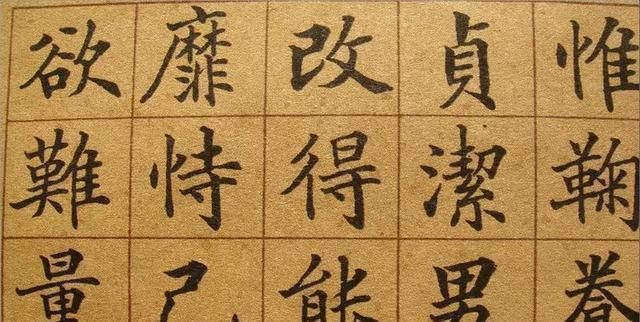 惟鞠養
貞潔男
改得能
靡恃己
欲難量